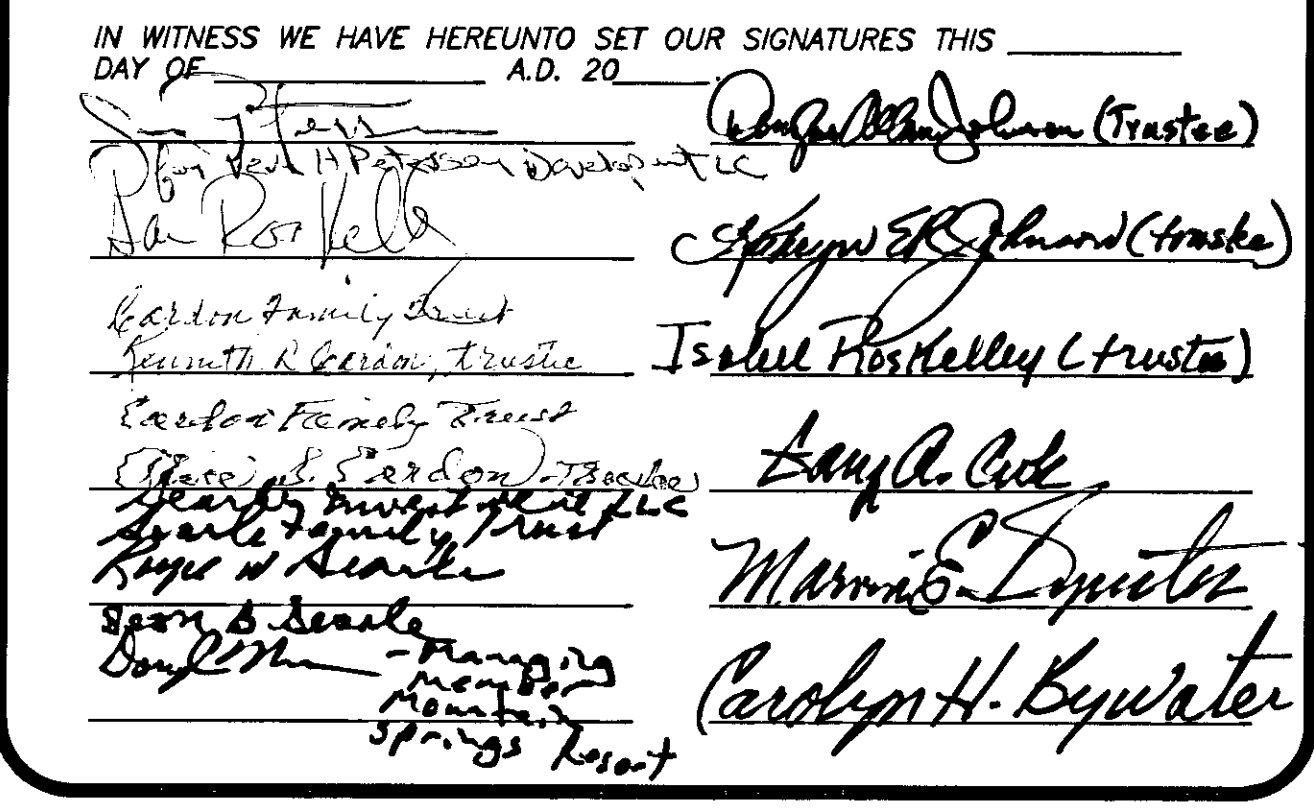 IN WITNESS WE HAVE HEREUNTO SET OUR SIGNATURES THIS
DAY OF A.D. 20
for H Peterson Development LC
Dan Roskelley
Cardon Family Trust
Kenneth R Cardon, trustee
Cardon Family Trust
S. Cardon - Trustee
Investment LLC
Searle Family Trust
W Searle
B Searle
- Managing
Member
Mountain
Springs Resort
Allan Johnson (Trustee)
Johnson (trustee)
Roskelley (trustee)
A. Cook
Marvin E. Bywater
Carolyn H. Bywater